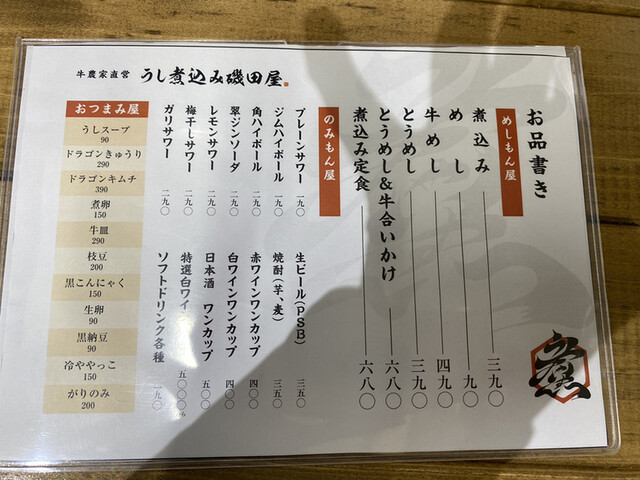 牛農家直営 うし煮込み磯田屋
お品書き
めしもん屋
煮込み 三九〇
めし 九〇
牛めし 四九〇
とうめし 三九〇
とうめし&牛合いかけ 六八〇
煮込み定食 六八〇
のみもん屋
プレーンサワー 一九〇
ジムハイボール 一九〇
角ハイボール 二九〇
翠ジンソーダ 二九〇
レモンサワー 二九〇
梅干しサワー 二九〇
ガリサワー 二九〇
生ビール(PSB) 三五〇
焼酎(芋、麦) 三五〇
赤ワインワンカップ 四〇〇
白ワインワンカップ 四〇〇
日本酒 ワンカップ 五〇〇
特選白ワイ 五〇〇〇
ソフトドリンク各種 一九〇
おつまみ屋
うしスープ
90
ドラゴンきゅうり
290
ドラゴンキムチ
390
煮卵
150
牛皿
290
枝豆
200
黒こんにゃく
150
生卵
90
黒納豆
90
冷ややっこ
150
がりのみ
200
煮